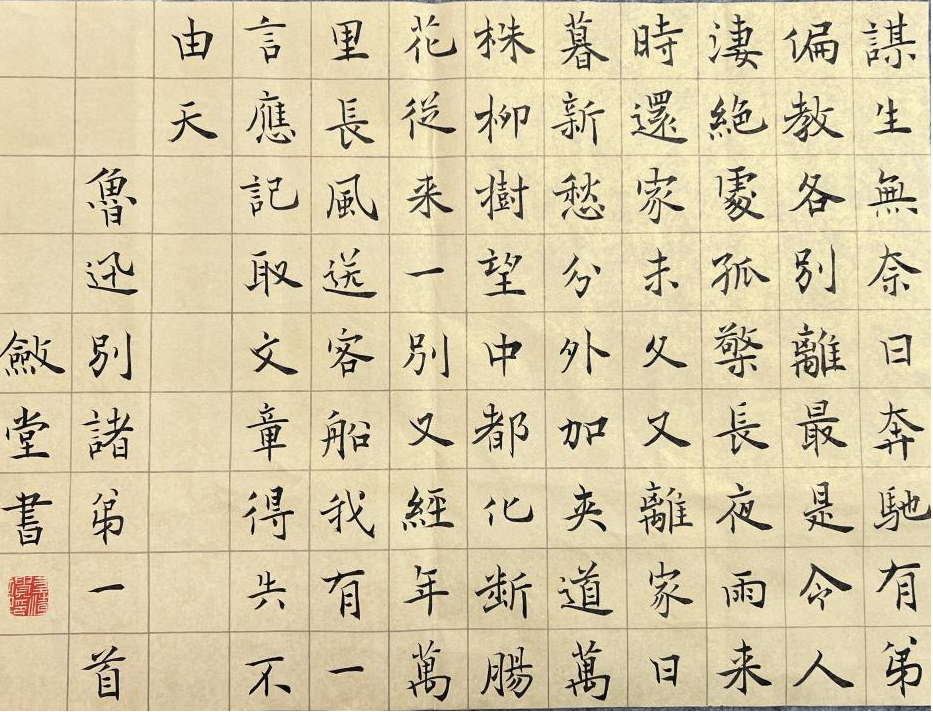 謀生無奈日奔馳有弟
偏教各別離最是令人
淒絕處孤檠長夜雨来
時還家未久又離家日
暮新愁分外加夾道萬
株柳樹望中都化断腸
花從来一別又經年萬
里長風送客船我有一
言應記取文章得共不
由天
魯迅別諸弟一首
斂堂書